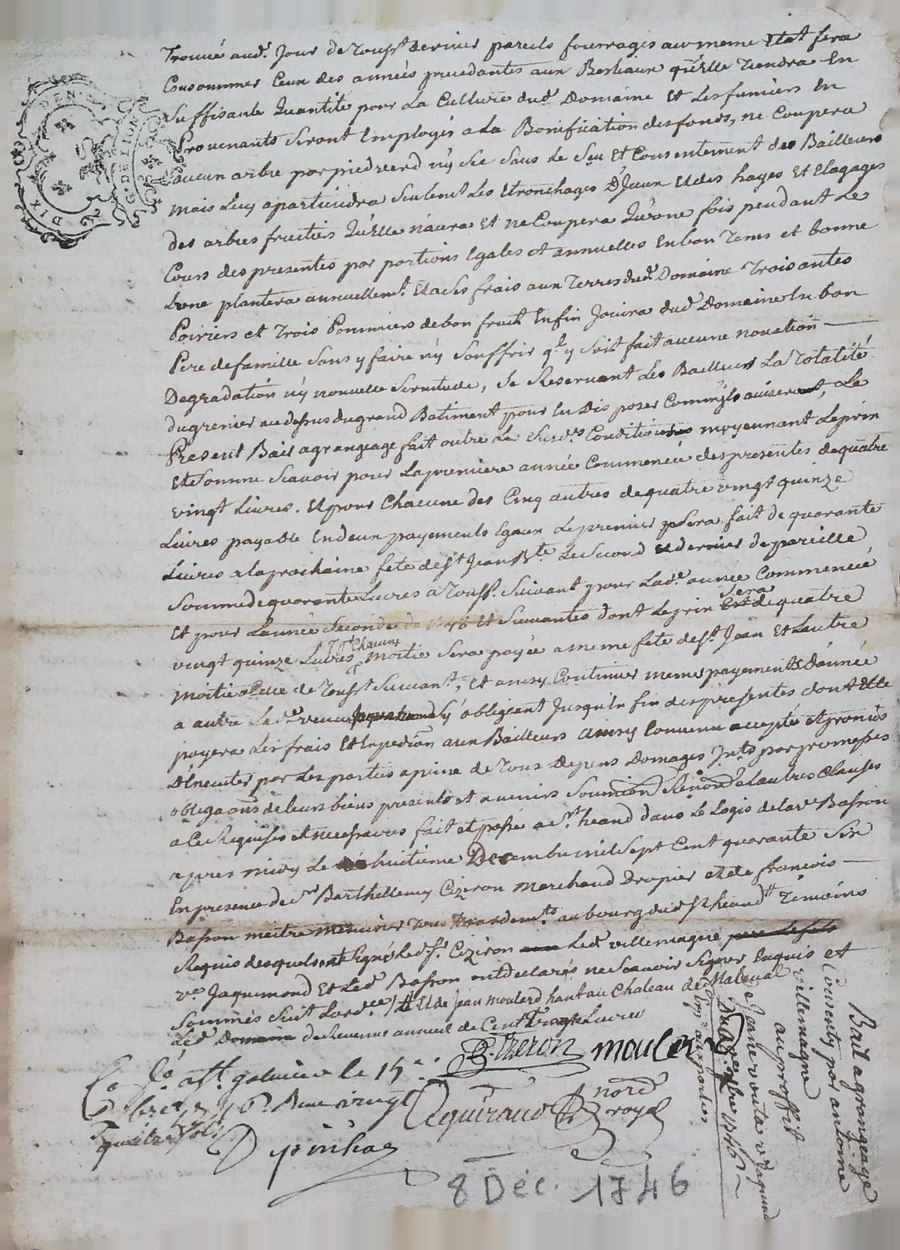 DIX DEN.
G. DE LION
Trouvé aud. Jour de Touss.t dernier pareils fourrages au meme Etat fera
Consommer Ceux des années precedantes aux Bestiaux qu'Elle Tiendra En
Suffisante quantité pour La Culture dud. Domaine Et Les fumiers En
Provenants Seront Employés a La Bonification des fonds, ne Coupera
aucun arbre par pied verd ny Sec Sans Le Seu Et Consentement des Bailleurs
mais Luy apartiendra Seulem.t Les Etronchages Et des hayes Et Elagages
des arbres fruitiers qu'Elle n'aura Et ne Coupera qu'une fois pendant Le
Cours des presentes par portions Egales et annuelles En bon Tems et bonne
Lune plantera annuellem.t Et a Ses frais aux Terres dud. Domaine Trois antes
Poiriers et Trois Pommiers de bon fruit Enfin Jouira dud. Domaine En bon
Pere de famille Sans y faire ny Souffrir q.l y Soit fait aucune novation
Degradation ny nouvelle Servitude, Se Reservant Les Bailleurs La Totalité
du grenier au dessus du grand Batiment pour En Disposer Comm'ils aviseront, Le
Present Bail a grangeage fait outre Les Susd.s Conditions moyennant Le prix
Et Somme Scavoir pour La premiere année Commencée des presentes de quatre
vingt Livres. Et pour Chacune des Cinq autres de quatre vingt quinze
Livres payable En deux payements Egaux Le premier Sera fait de quarante
Livres a la prochaine fete de S.t Jean B.te Le Second et dernier de pareille
Somme de quarante Livres a Touss.t Suivant pour Lad.e année Commencée
Et pour L'année Seconde Et Suivantes dont Le prix Sera de quatre
vingt quinze Livres Chacune moitié Sera payée a meme fete de S.t Jean Et L'autre
moitié a Celle de Touss.t Suivant, Et ainsy Continuer memes payements D'année
a autre Lad.e veuve S'y obligeant Jusqu'En fin des presentes dont Elle
payera Les frais Et Expedi.on aux Bailleurs ainsy Convenu accepté Et promis
D'Executer par Les parties a peine de Tous Depens Domages Int.s par promesses
obligaõns de Leurs biens presents et avenirs Soumi.ons Renonc.ons Et autres Clauses
a Ce Requises Et Necessaires fait et passé a S.t heand dans Le Logis de La v.e Basson
apres midy Le huitieme Decembre mil Sept Cent quarante Six
En presence de S.r Barthellemy Ezeron Marchand Drapier et de francois
Basson maitre menuisier Tous deux au bourg dud. S.t heand Témoins
Requis desquels ont signé Led. S.r Ezeron Led. villemagne
v.e Jaquemond Et Led. Basson ont declarés ne Scavoir Signer Enquis et
Sommés Suit L'ord.ce Et de Jean moulerd hant au Chateau de Maleval
Led. Domaine de Revenus annuel de Cent Livres
B. Ezeron moulerd
le 15.e
Xbre 1746
not. royal
Depinhac
8 Déc. 1746
Bail a grangeage
Consenty par antoine
villemagne
au proffit
de Jeane v.e Jaquemond
Du 8 Xbre 1746